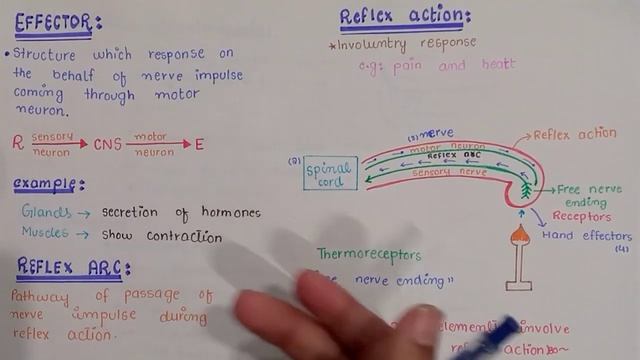 EFFECTOR:
• Structure which response on
the behalf of nerve impulse
coming through motor
neuron.
R sensory neuron CNS motor neuron E
example:
Glands → secretion of hormones
Muscles → show contraction
REFLEX ARC:
Pathway of passage of
nerve impulse during
reflex action.
Reflex action:
*Involuntry response
e.g: pain and heatt
(3) nerve
motor neuron
Reflex arc
sensory nerve
(2)
spinal
cord
Reflex action
Free nerve
ending
Receptors
Hand effectors
(4)
Thermoreceptors
nerve ending"
involve
action